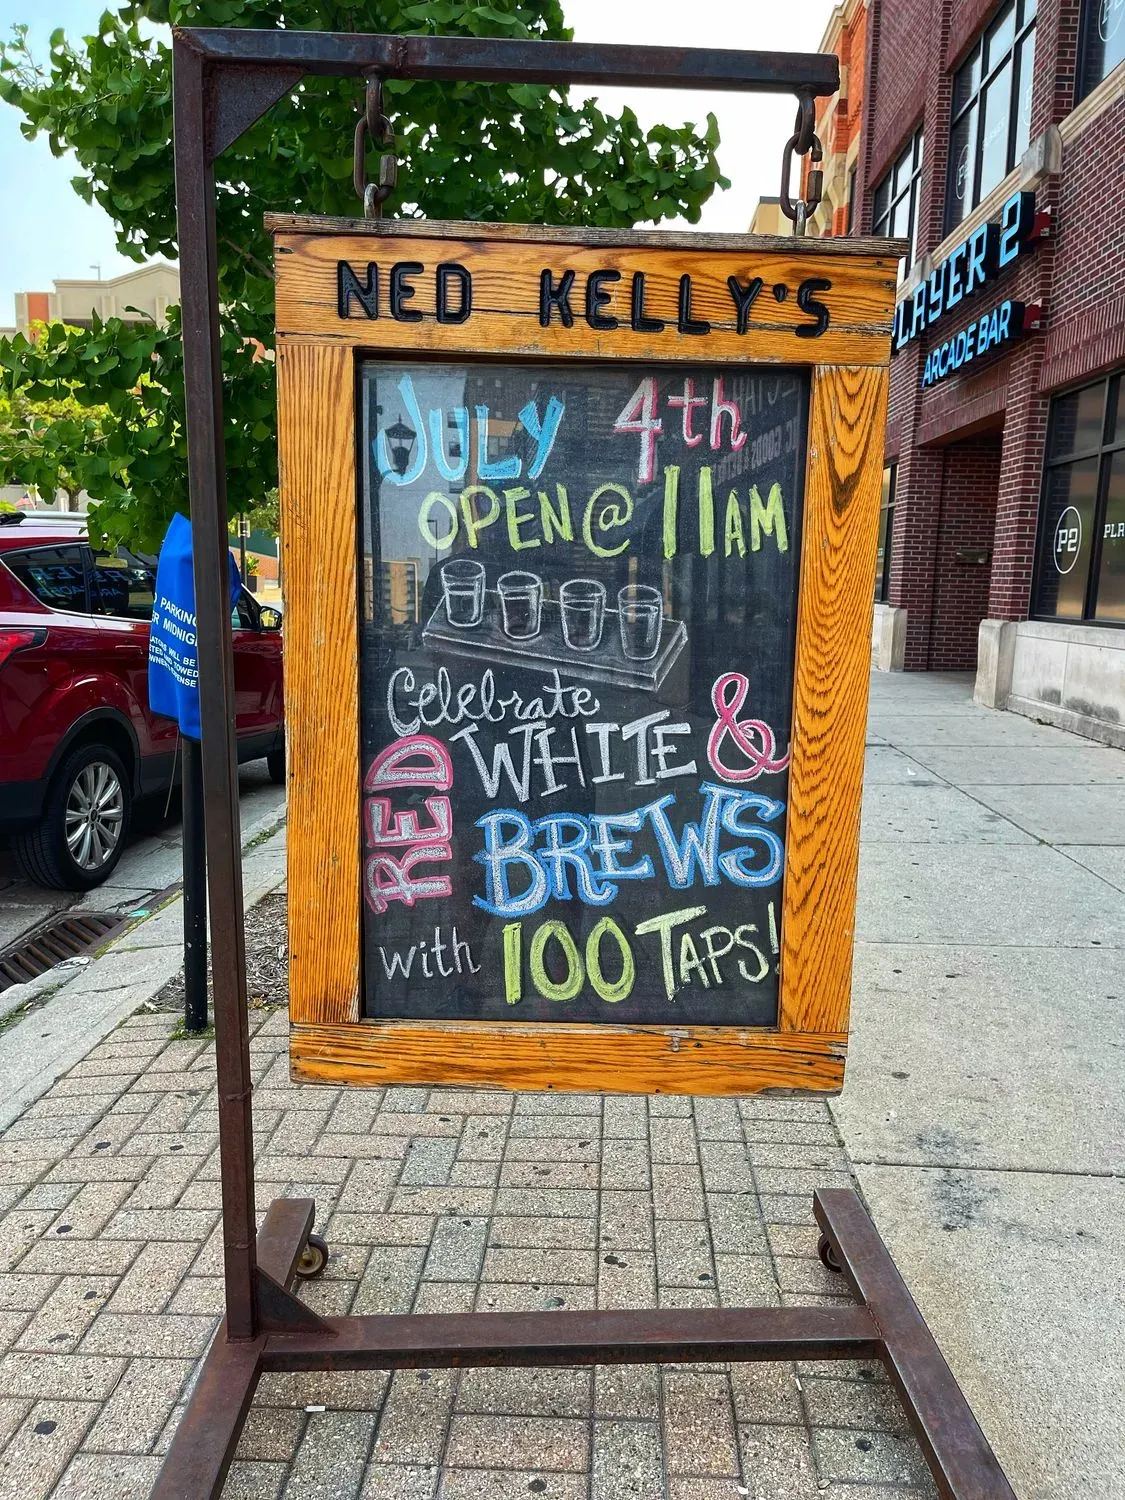 NED KELLY'S
JULY 4th
OPEN @ 11AM
Celebrate
RED WHITE &
BREWS
with 100 TAPS!
PLAYER 2
ARCADE BAR
P2
PARKING
MIDNIG
WILL BE
TOWED